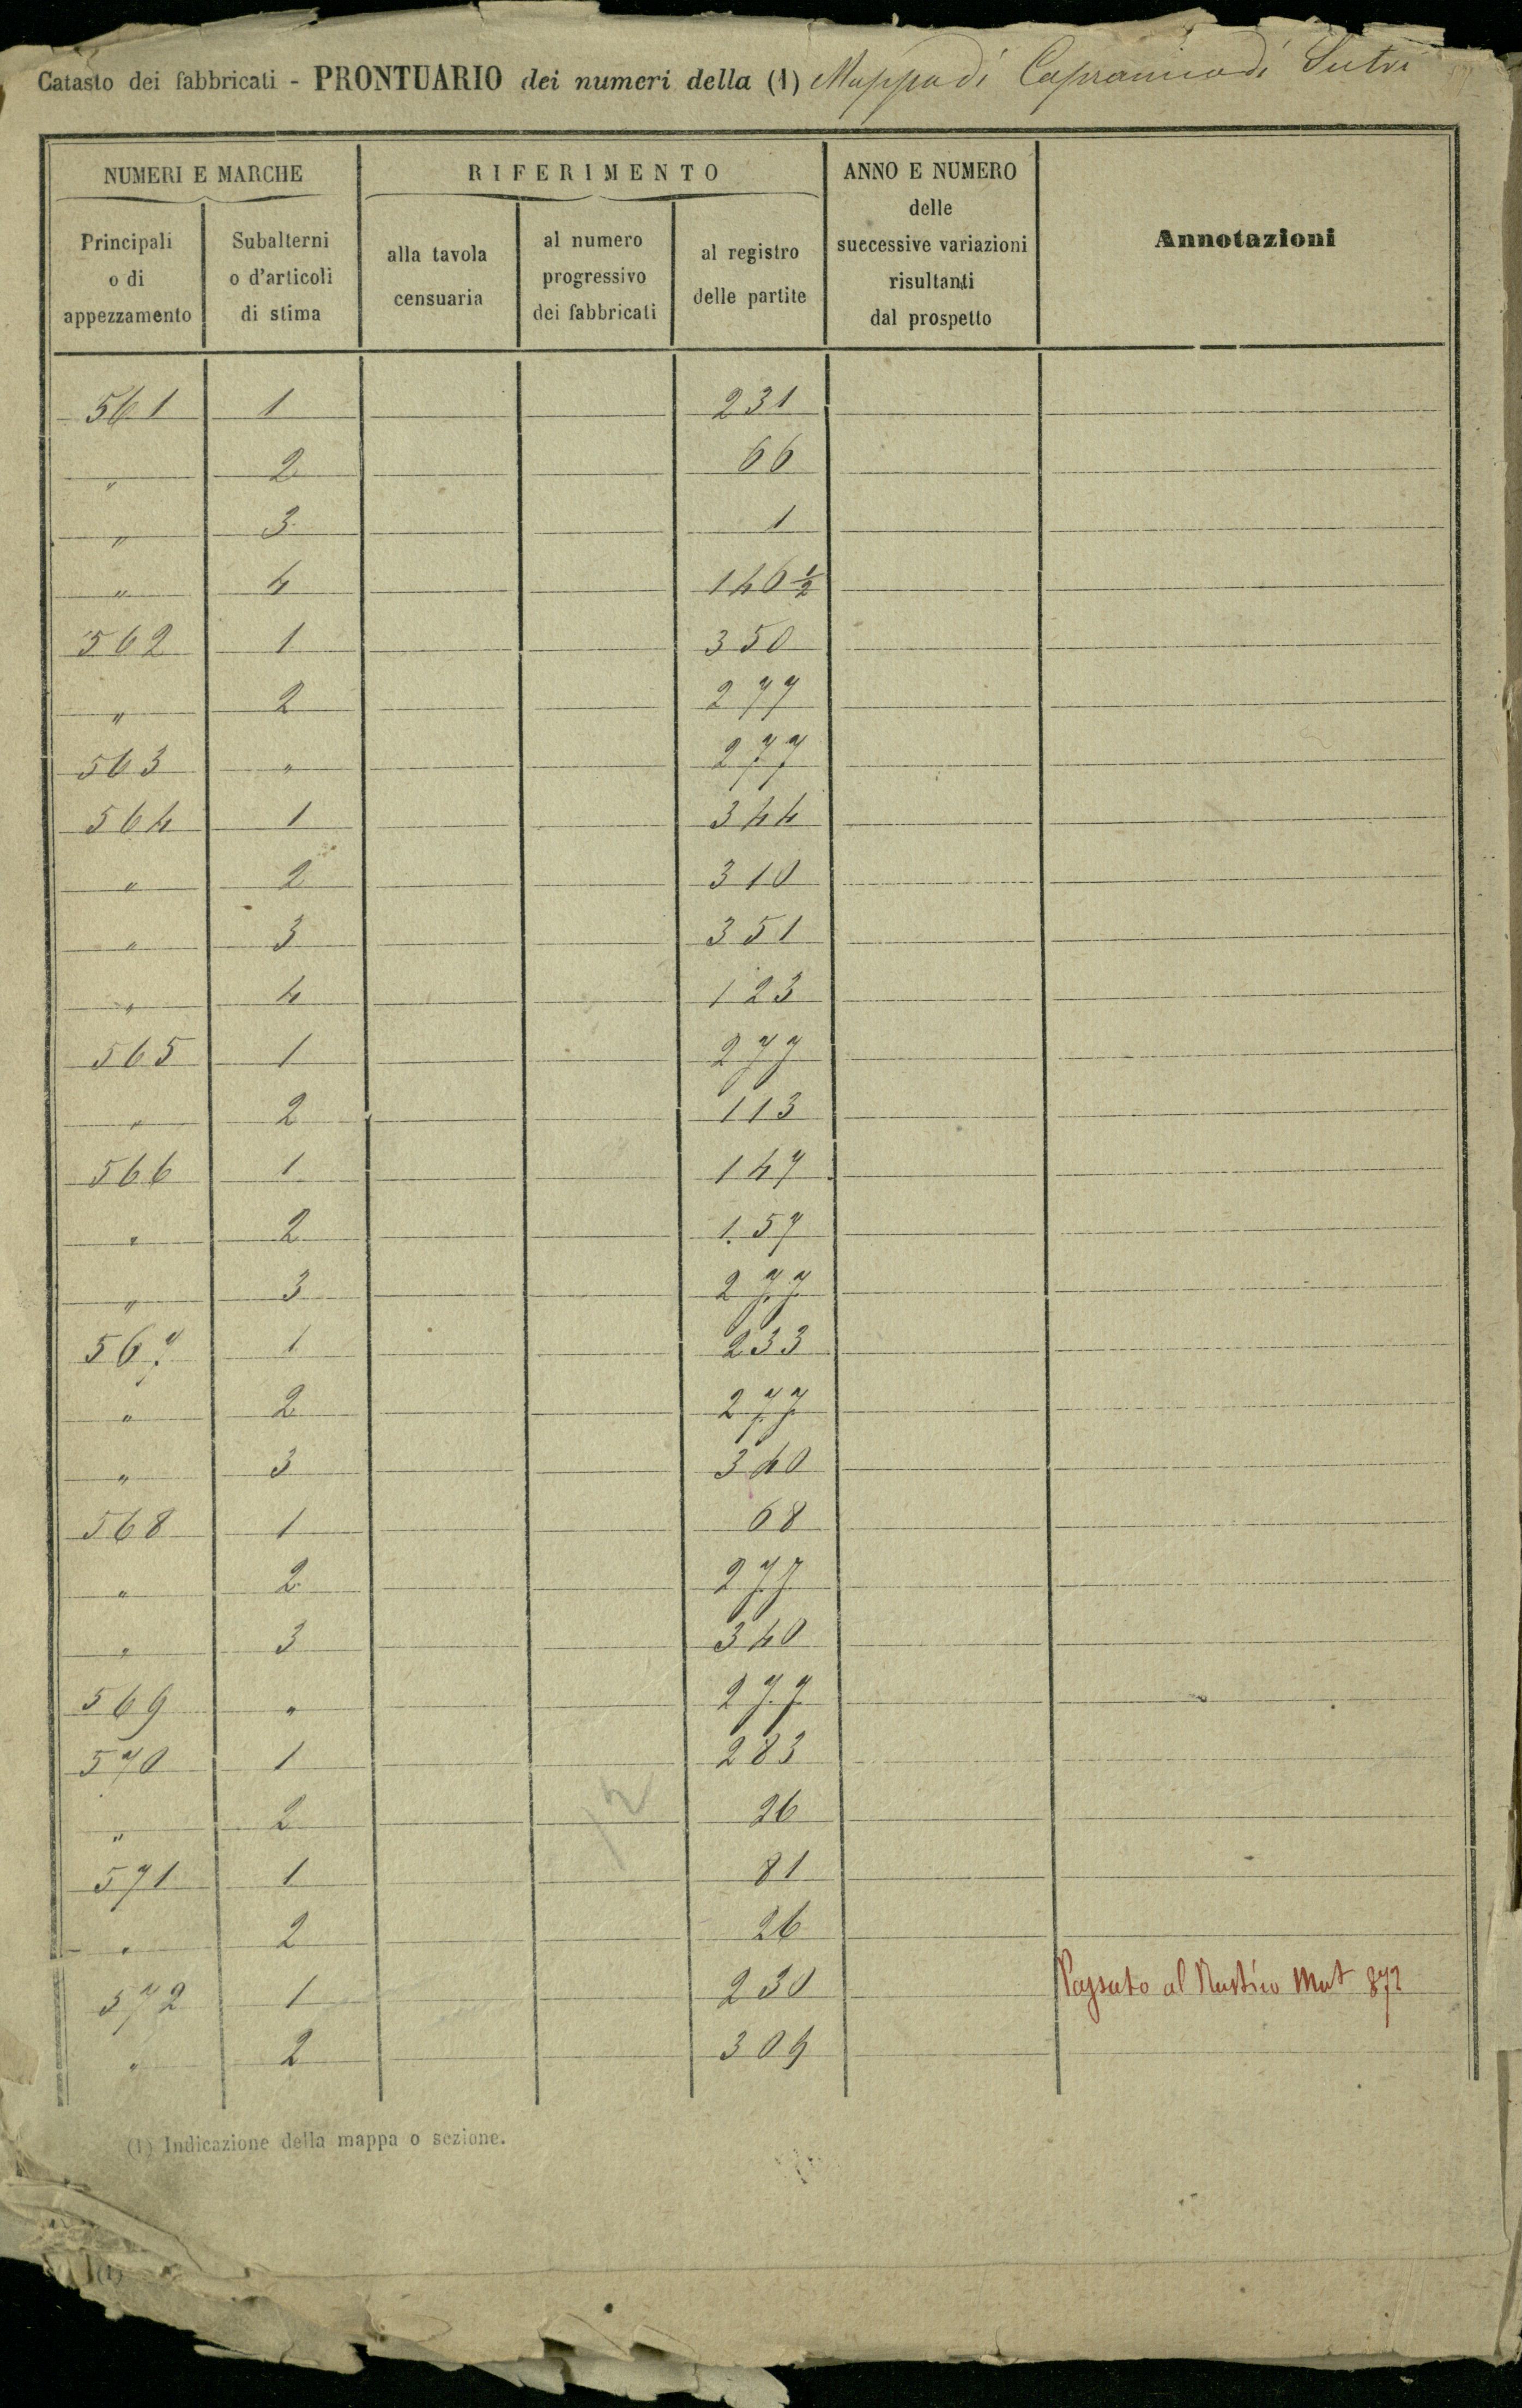 Catasto dei fabbricati - PRONTUARIO dei numeri della (1) Mappa di Capranica di Sutri
NUMERI E MARCHE RIFERIMENTO ANNO E NUMERO delle successive variazioni risultanti dal prospetto Annotazioni
Principali o di appezzamento Subalterni o d'articoli di stima alla tavola censuaria al numero progressivo dei fabbricati al registro delle partite
561 1 231
" 2 66
" 3 1
" 4 146 1/2
562 1 350
" 2 277
563 " 277
564 1 344
" 2 310
" 3 351
" 4 123
565 1 277
" 2 113
566 1 147
" 2 157
" 3 277
567 1 233
" 2 277
" 3 340
568 1 68
" 2 277
" 3 340
569 " 277
570 1 283
12
" 2 26
571 1 81
" 2 26
572 1 230 Passato al Rustico Mut 872
" 2 309
(1) Indicazione della mappa o sezione.